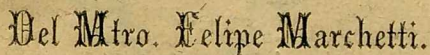 Del Mtro. Felipe Marchetti.